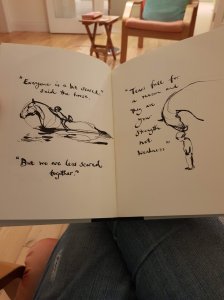 "Everyone is a bit scared,"
said the horse.
"But we are less scared
together."
"Tears fall for
a reason and
they are
your
strength
not
weakness."